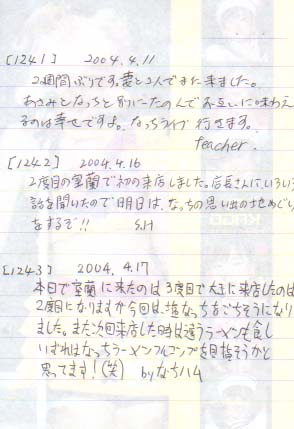 [1241] 2004.4.11
2週間ぶりです。妻と2人でまた来ました。
あさみとなっちと別にたのんでお互いに味わえ
るのは幸せですよ。なっちライブ行きます。
teacher.
[1242] 2004.4.16
2度目の室蘭で初の来店しました。店長さんに、いろいろ
話を聞いたので明日は、なっちの思い出の地めぐり
をするぞ!! S.H
[1243] 2004.4.17
本日で室蘭に来たのは3度目で大王に来店したのは
2度目になりますが今回は、塩なっちをごちそうになり
ました。また次回来店した時は違うラーメンも食し
いずれはなっちラーメンフルコンプを目指そうかと
思ってます!(笑) byなちハム